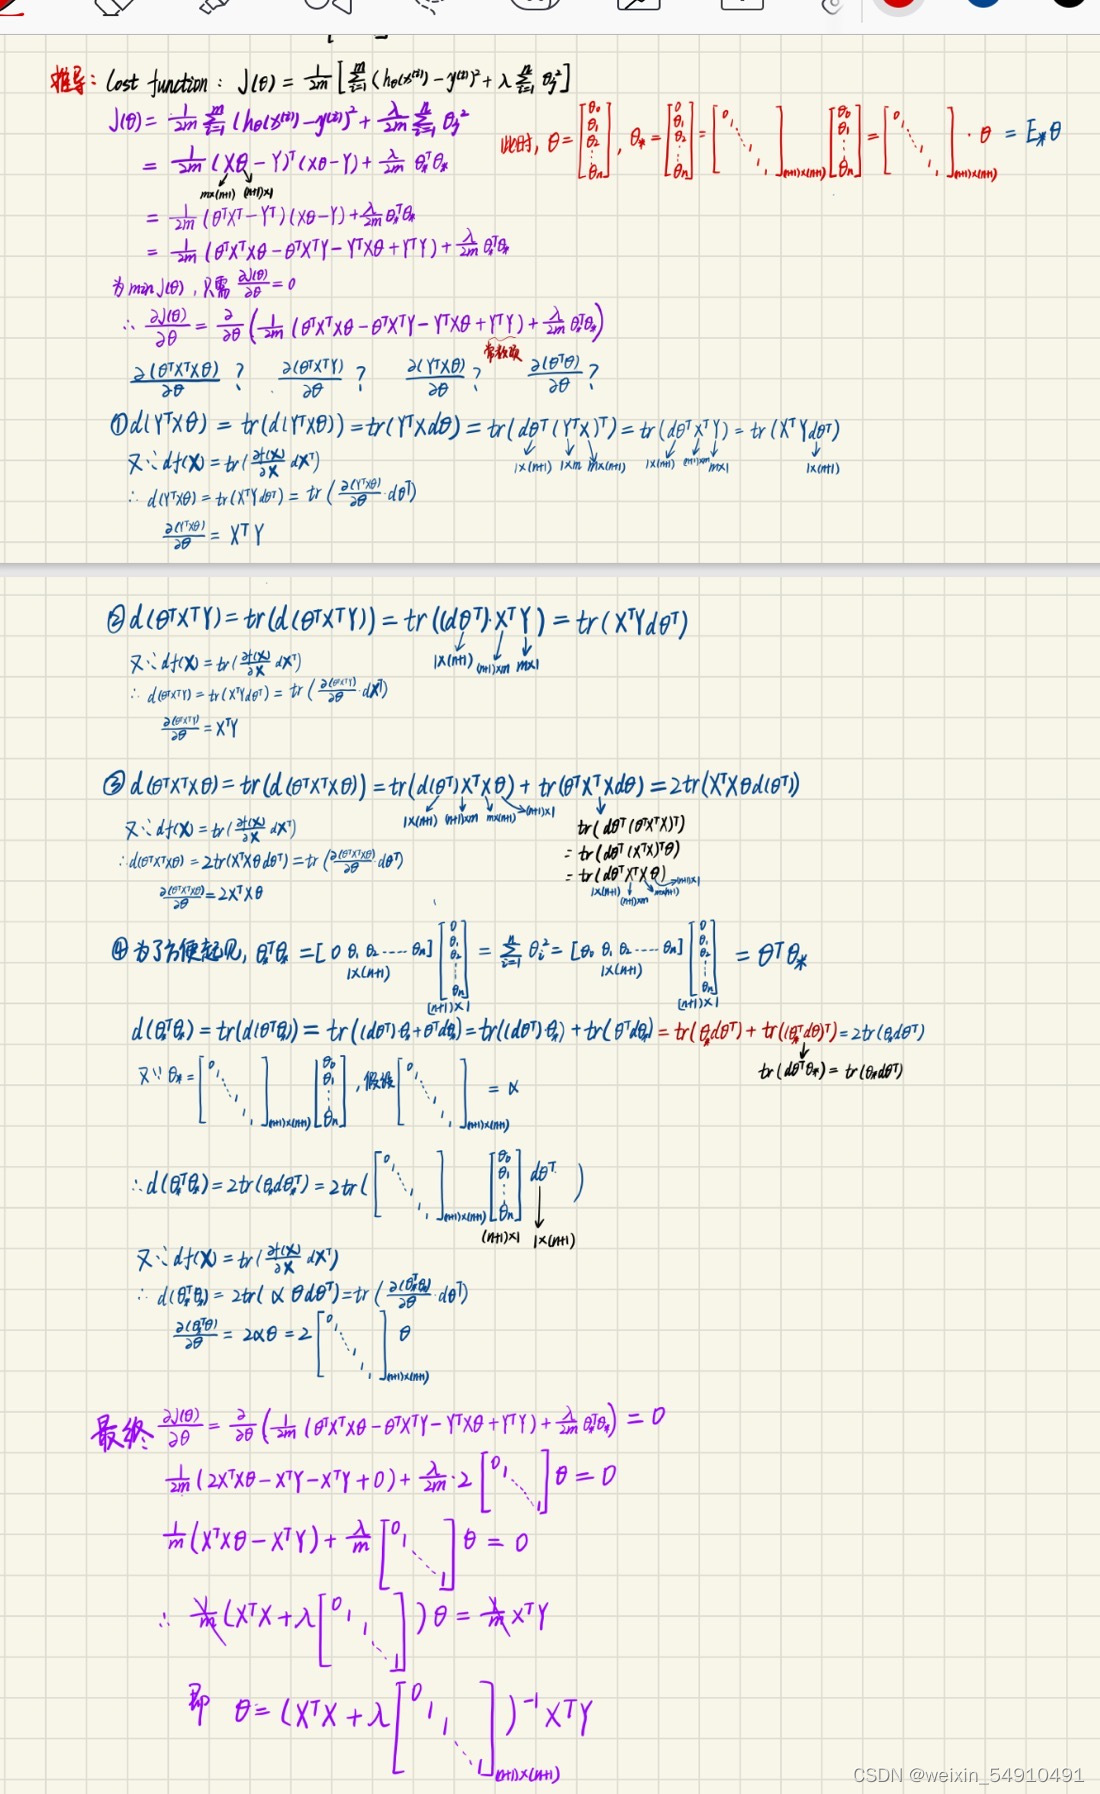 推导: Cost function: J(θ) = 1/2m [ Σ_{i=1}^{m} (hθ(x^{(i)}) - y^{(i)})² + λ Σ_{j=1}^{n} θ_j² ]
J(θ) = 1/2m Σ_{i=1}^{m} (hθ(x^{(i)}) - y^{(i)})² + λ/2m Σ_{j=1}^{n} θ_j²
此时, θ = [θ₀ θ₁ θ₂ ⋮ θn], θ* = [0 θ₁ θ₂ ⋮ θn] = [0 1 ⋱ 1]_{(n+1)×(n+1)} [θ₀ θ₁ ⋮ θn] = [0 1 ⋱ 1]_{(n+1)×(n+1)} · θ = E*θ
= 1/2m (Xθ - Y)ᵀ(Xθ - Y) + λ/2m θ*ᵀθ*
m×(n+1) (n+1)×1
= 1/2m (θᵀXᵀ - Yᵀ)(Xθ - Y) + λ/2m θ*ᵀθ*
= 1/2m (θᵀXᵀXθ - θᵀXᵀY - YᵀXθ + YᵀY) + λ/2m θ*ᵀθ*
为min J(θ), 只需 ∂J(θ)/∂θ = 0
∴ ∂J(θ)/∂θ = ∂/∂θ (1/2m (θᵀXᵀXθ - θᵀXᵀY - YᵀXθ + YᵀY) + λ/2m θ*ᵀθ*)
常数项
∂(θᵀXᵀXθ)/∂θ ? ∂(θᵀXᵀY)/∂θ ? ∂(YᵀXθ)/∂θ ? ∂(θᵀθ)/∂θ ?
① d(YᵀXθ) = tr(d(YᵀXθ)) = tr(YᵀXdθ) = tr(dθᵀ(YᵀX)ᵀ) = tr(dθᵀXᵀY) = tr(XᵀYdθᵀ)
1×(n+1) 1×m m×(n+1) 1×(n+1) (n+1)×m m×1 1×(n+1)
又∵ df(X) = tr(∂f(X)/∂X dXᵀ)
∴ d(YᵀXθ) = tr(XᵀYdθᵀ) = tr(∂(YᵀXθ)/∂θ · dθᵀ)
∂(YᵀXθ)/∂θ = XᵀY
② d(θᵀXᵀY) = tr(d(θᵀXᵀY)) = tr((dθᵀ)·XᵀY) = tr(XᵀYdθᵀ)
1×(n+1) (n+1)×m m×1
又∵ df(X) = tr(∂f(X)/∂X dXᵀ)
∴ d(θᵀXᵀY) = tr(XᵀYdθᵀ) = tr(∂(θᵀXᵀY)/∂θ · dXᵀ)
∂(θᵀXᵀY)/∂θ = XᵀY
③ d(θᵀXᵀXθ) = tr(d(θᵀXᵀXθ)) = tr(d(θᵀ)XᵀXθ) + tr(θᵀXᵀXdθ) = 2tr(XᵀXθd(θᵀ))
1×(n+1) (n+1)×m m×(n+1) (n+1)×1
tr(dθᵀ(θᵀXᵀX)ᵀ)
又∵ df(X) = tr(∂f(X)/∂X dXᵀ)
= tr(dθᵀ(XᵀX)ᵀθ)
∴ d(θᵀXᵀXθ) = 2tr(XᵀXθdθᵀ) = tr(∂(θᵀXᵀXθ)/∂θ · dθᵀ)
= tr(dθᵀXᵀXθ)
1×(n+1) (n+1)×m m×(n+1) (n+1)×1
∂(θᵀXᵀXθ)/∂θ = 2XᵀXθ
④ 为了方便起见, θ*ᵀθ* = [0 θ₁ θ₂ ···· θn] [0 θ₁ θ₂ ⋮ θn] = Σ_{i=1}^{n} θ_i² = [θ₀ θ₁ θ₂ ···· θn] [0 θ₁ θ₂ ⋮ θn] = θᵀθ*
1×(n+1) (n+1)×1 1×(n+1) (n+1)×1
d(θ*ᵀθ*) = tr(d(θᵀθ*)) = tr((dθᵀ)·θ* + θᵀdθ*) = tr((dθᵀ)·θ*) + tr(θᵀdθ*) = tr(θ*dθᵀ) + tr((θ*ᵀdθ)ᵀ) = 2tr(θ*dθᵀ)
tr(dθᵀθ*) = tr(θ*dθᵀ)
又∵ θ* = [0 1 ⋱ 1]_{(n+1)×(n+1)} [θ₀ θ₁ ⋮ θn], 假设 [0 1 ⋱ 1]_{(n+1)×(n+1)} = α
∴ d(θ*ᵀθ*) = 2tr(θ*dθ*ᵀ) = 2tr( [0 1 ⋱ 1]_{(n+1)×(n+1)} [θ₀ θ₁ ⋮ θn] dθᵀ )
(n+1)×1 1×(n+1)
又∵ df(X) = tr(∂f(X)/∂X dXᵀ)
∴ d(θ*ᵀθ*) = 2tr(αθdθᵀ) = tr(∂(θ*ᵀθ*)/∂θ · dθᵀ)
∂(θ*ᵀθ)/∂θ = 2αθ = 2 [0 1 ⋱ 1]_{(n+1)×(n+1)} θ
最终 ∂J(θ)/∂θ = ∂/∂θ (1/2m (θᵀXᵀXθ - θᵀXᵀY - YᵀXθ + YᵀY) + λ/2m θ*ᵀθ*) = 0
1/2m (2XᵀXθ - XᵀY - XᵀY + 0) + λ/2m · 2 [0 1 ⋱ 1] θ = 0
1/m (XᵀXθ - XᵀY) + λ/m [0 1 ⋱ 1] θ = 0
∴ 1/m (XᵀX + λ [0 1 1 ⋱ 1] ) θ = 1/m XᵀY
即 θ = (XᵀX + λ [0 1 1 ⋱ 1]_{(n+1)×(n+1)} )⁻¹ XᵀY
CSDN @weixin_54910491